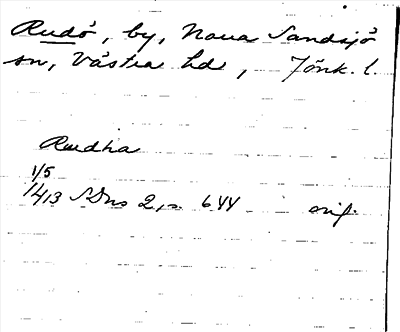 Rudö, by, Norra Sandsjö
sn, Västra hd, Jönk. l.
Rudha
1/5
1413 SDns 2, s 644 orig.